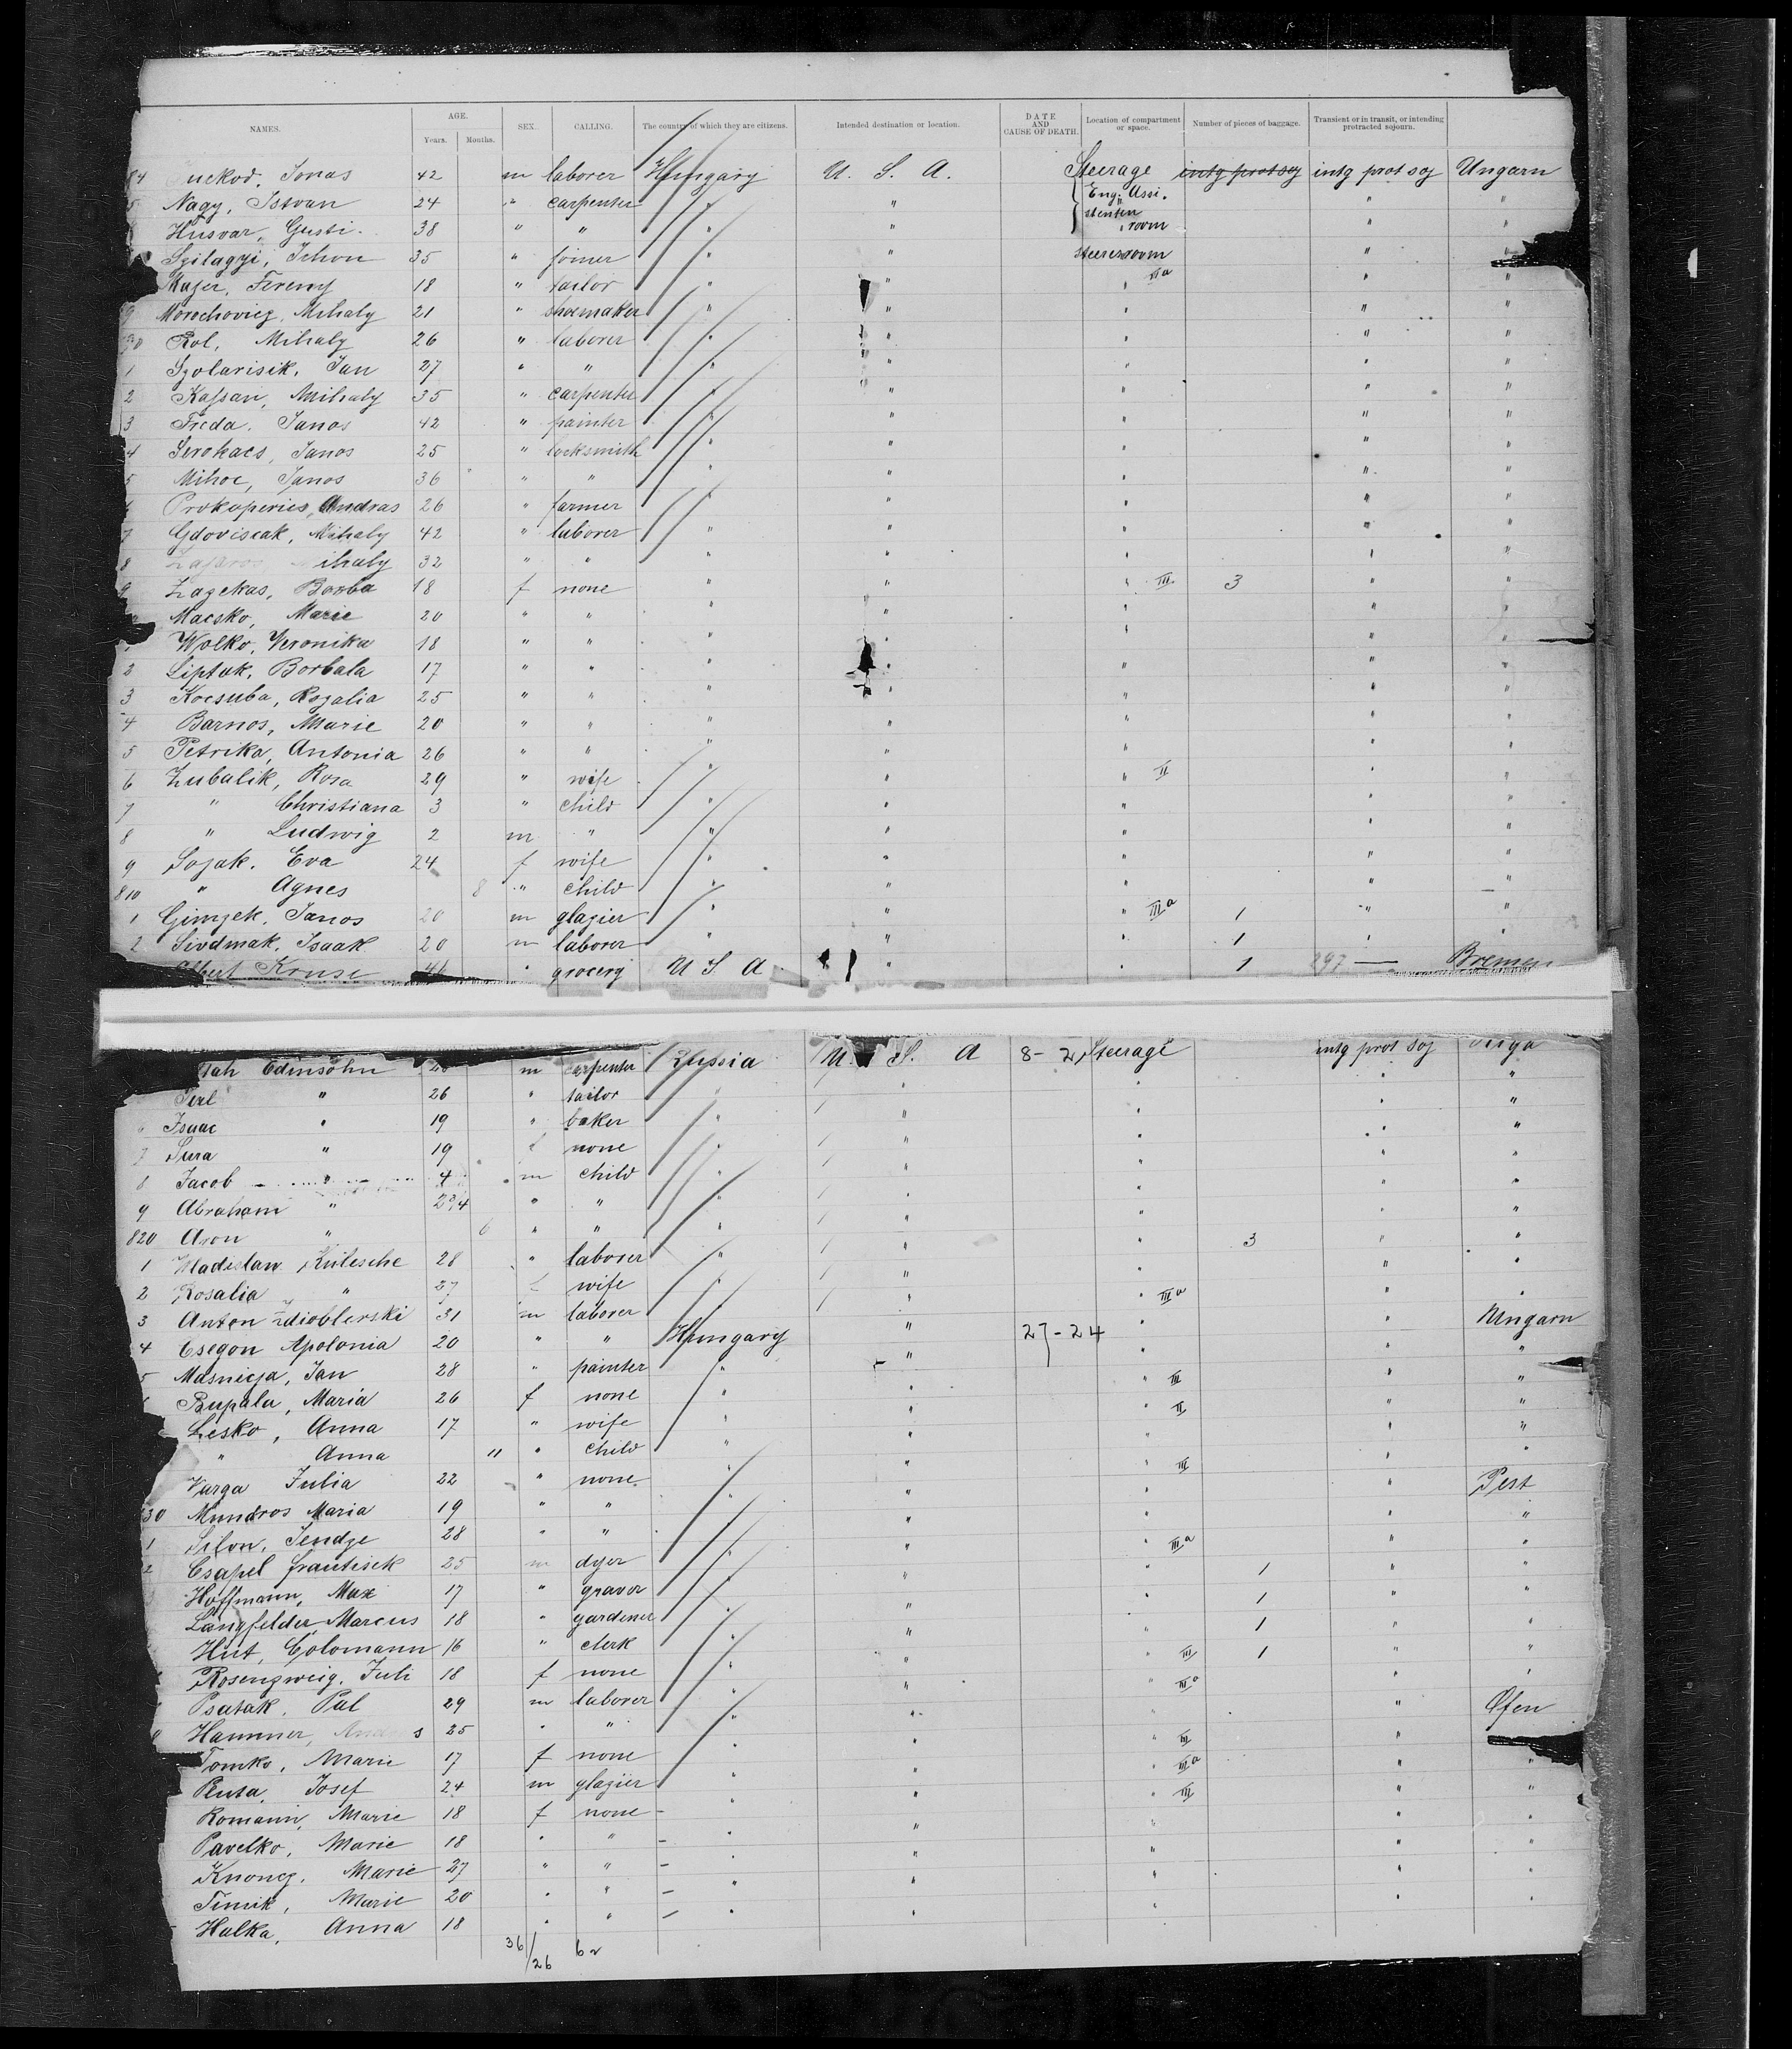 NAMES. AGE. SEX. CALLING. The country of which they are citizens. Intended destination or location. DATE AND CAUSE OF DEATH. Location of compartment or space. Number of pieces of baggage. Transient or in transit, or intending protracted sojourn.
Years. Months.
84 Jonas 42 m laborer Hungary U. S. A. Steerage intg prot soj intg prot soj Ungarn
5 Nagy, Istvan 24 " carpenter " " Eng. Assi. " "
Husvar, Gusti. 38 " " " " room " "
Szilagyi, 35 " joiner " " steeresroom " "
Majer, Ferency 18 " tailor " " " IIa " "
9 Morochovicz, Mihaly 21 " shoemaker " " " " "
90 Rol, Mihaly 26 " laborer " " " " "
1 Szolarisik, Jan 27 " " " " " " "
2 Kassan, Mihaly 35 " carpenter " " " " "
3 Freda, Janos 42 " painter " " " " "
4 Serokacs, Janos 25 " locksmith " " " " "
5 Mihoc, Janos 36 " " " " " " "
6 Prokopevics, Andras 26 " farmer " " " " "
7 Gdoviscak, Mihaly 42 " laborer " " " " "
8 ihaly 32 " " " " " " "
9 Zagekas, Borba 18 f none " " " III. 3 " "
Macsko, Marie 20 " " " " " " "
Wolko, Veronika 18 " " " " " " "
2 Liptak, Borbala 17 " " " " " " "
3 Kocsuba, Rozalia 25 " " " " " " "
4 Barnos, Marie 20 " " " " " " "
5 Petrika, Antonia 26 " " " " " " "
6 Zubalik, Rosa 29 " wife " " " II " "
7 " Christiana 3 " child " " " " "
8 " Ludwig 2 m " " " " " "
9 Sojak, Eva 24 f wife " " " " "
810 " Agnes 8 " child " " " " "
1 Gimzek, Janos 20 m glazier " " " IIIa 1 " "
2 Sivdmak, Isaak 20 m laborer " " " 1 " "
Albert Kruse 41 " grocery U S A " " 1 297 — Bremen
Edinsohn m carpenter Russia U. S. A 8-2 Steerage intg prot soj
" 26 " tailor " " " " "
6 Isaac " 19 " baker " " " " "
7 Sura " 19 f none " " " " "
8 Jacob " 4 m child " " " " "
9 Abraham " 2 3/4 " " " " " " "
820 Aron " 6 " " " " " 3 " "
1 Wladislaw Kulesche 28 " laborer " " " " "
2 Rosalia " 27 f wife " " " IIIa " "
3 Anton Zdioblerski 31 m laborer " " " " Ungarn
4 Csegon Apolonia 20 " " Hungary " 27-24 " " "
5 Masnicja, Jan 28 " painter " " " III " "
Bupala, Maria 26 f none " " " II " "
Lesko, Anna 17 " wife " " " " "
" Anna 11 " child " " " III " "
Varga Julia 22 " none " " " " Pest
30 Mundros Maria 19 " " " " " " "
1 Silon, Jendze 28 " " " " " IIIa " "
2 Csapel frantisek 25 m dyer " " " 1 " "
Hoffmann, Max 17 " gravor " " " 1 " "
Langfelder, Marcus 18 " gardener " " " 1 " "
Hut, Colomann 16 " clerk " " " III 1 " "
Rosenzweig, Juli 18 f none " " " IIIa " "
Psatak, Pal 29 m laborer " " " " Ofen
Hammer, 25 " " " " " III " "
Tomko, Marie 17 f none " " " IIIa " "
Penta, Josef 24 m glazier " " " III " "
Romanin, Marie 18 f none " " " " "
Pavelko, Marie 18 " " " " " " "
Knoncz, Marie 27 " " " " " " "
Timik, Marie 20 " " " " " " "
Halka, Anna 18 " " " "
36/26 62